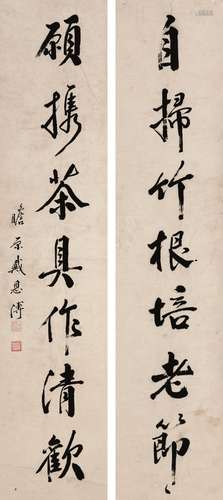 自掃竹根培老節
願携茶具作清歡
瞻原戴恩溥